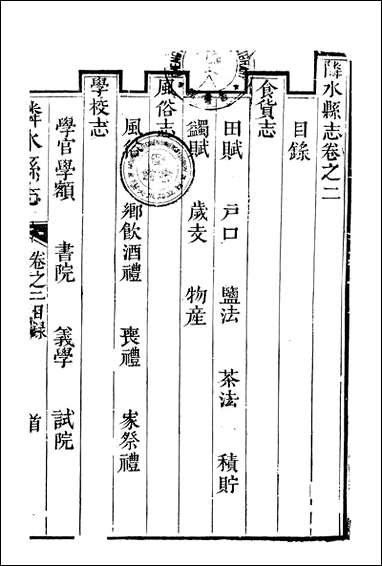 隣水縣志卷之二
目錄
食貨志
田賦 戸口 鹽法 茶法 積貯
蠲賦 歲支 物産
風俗志
風俗 鄉飲酒禮 喪禮 家祭禮
學校志
學官學額 書院 義學 試院
隣水縣志 卷之二目錄 首